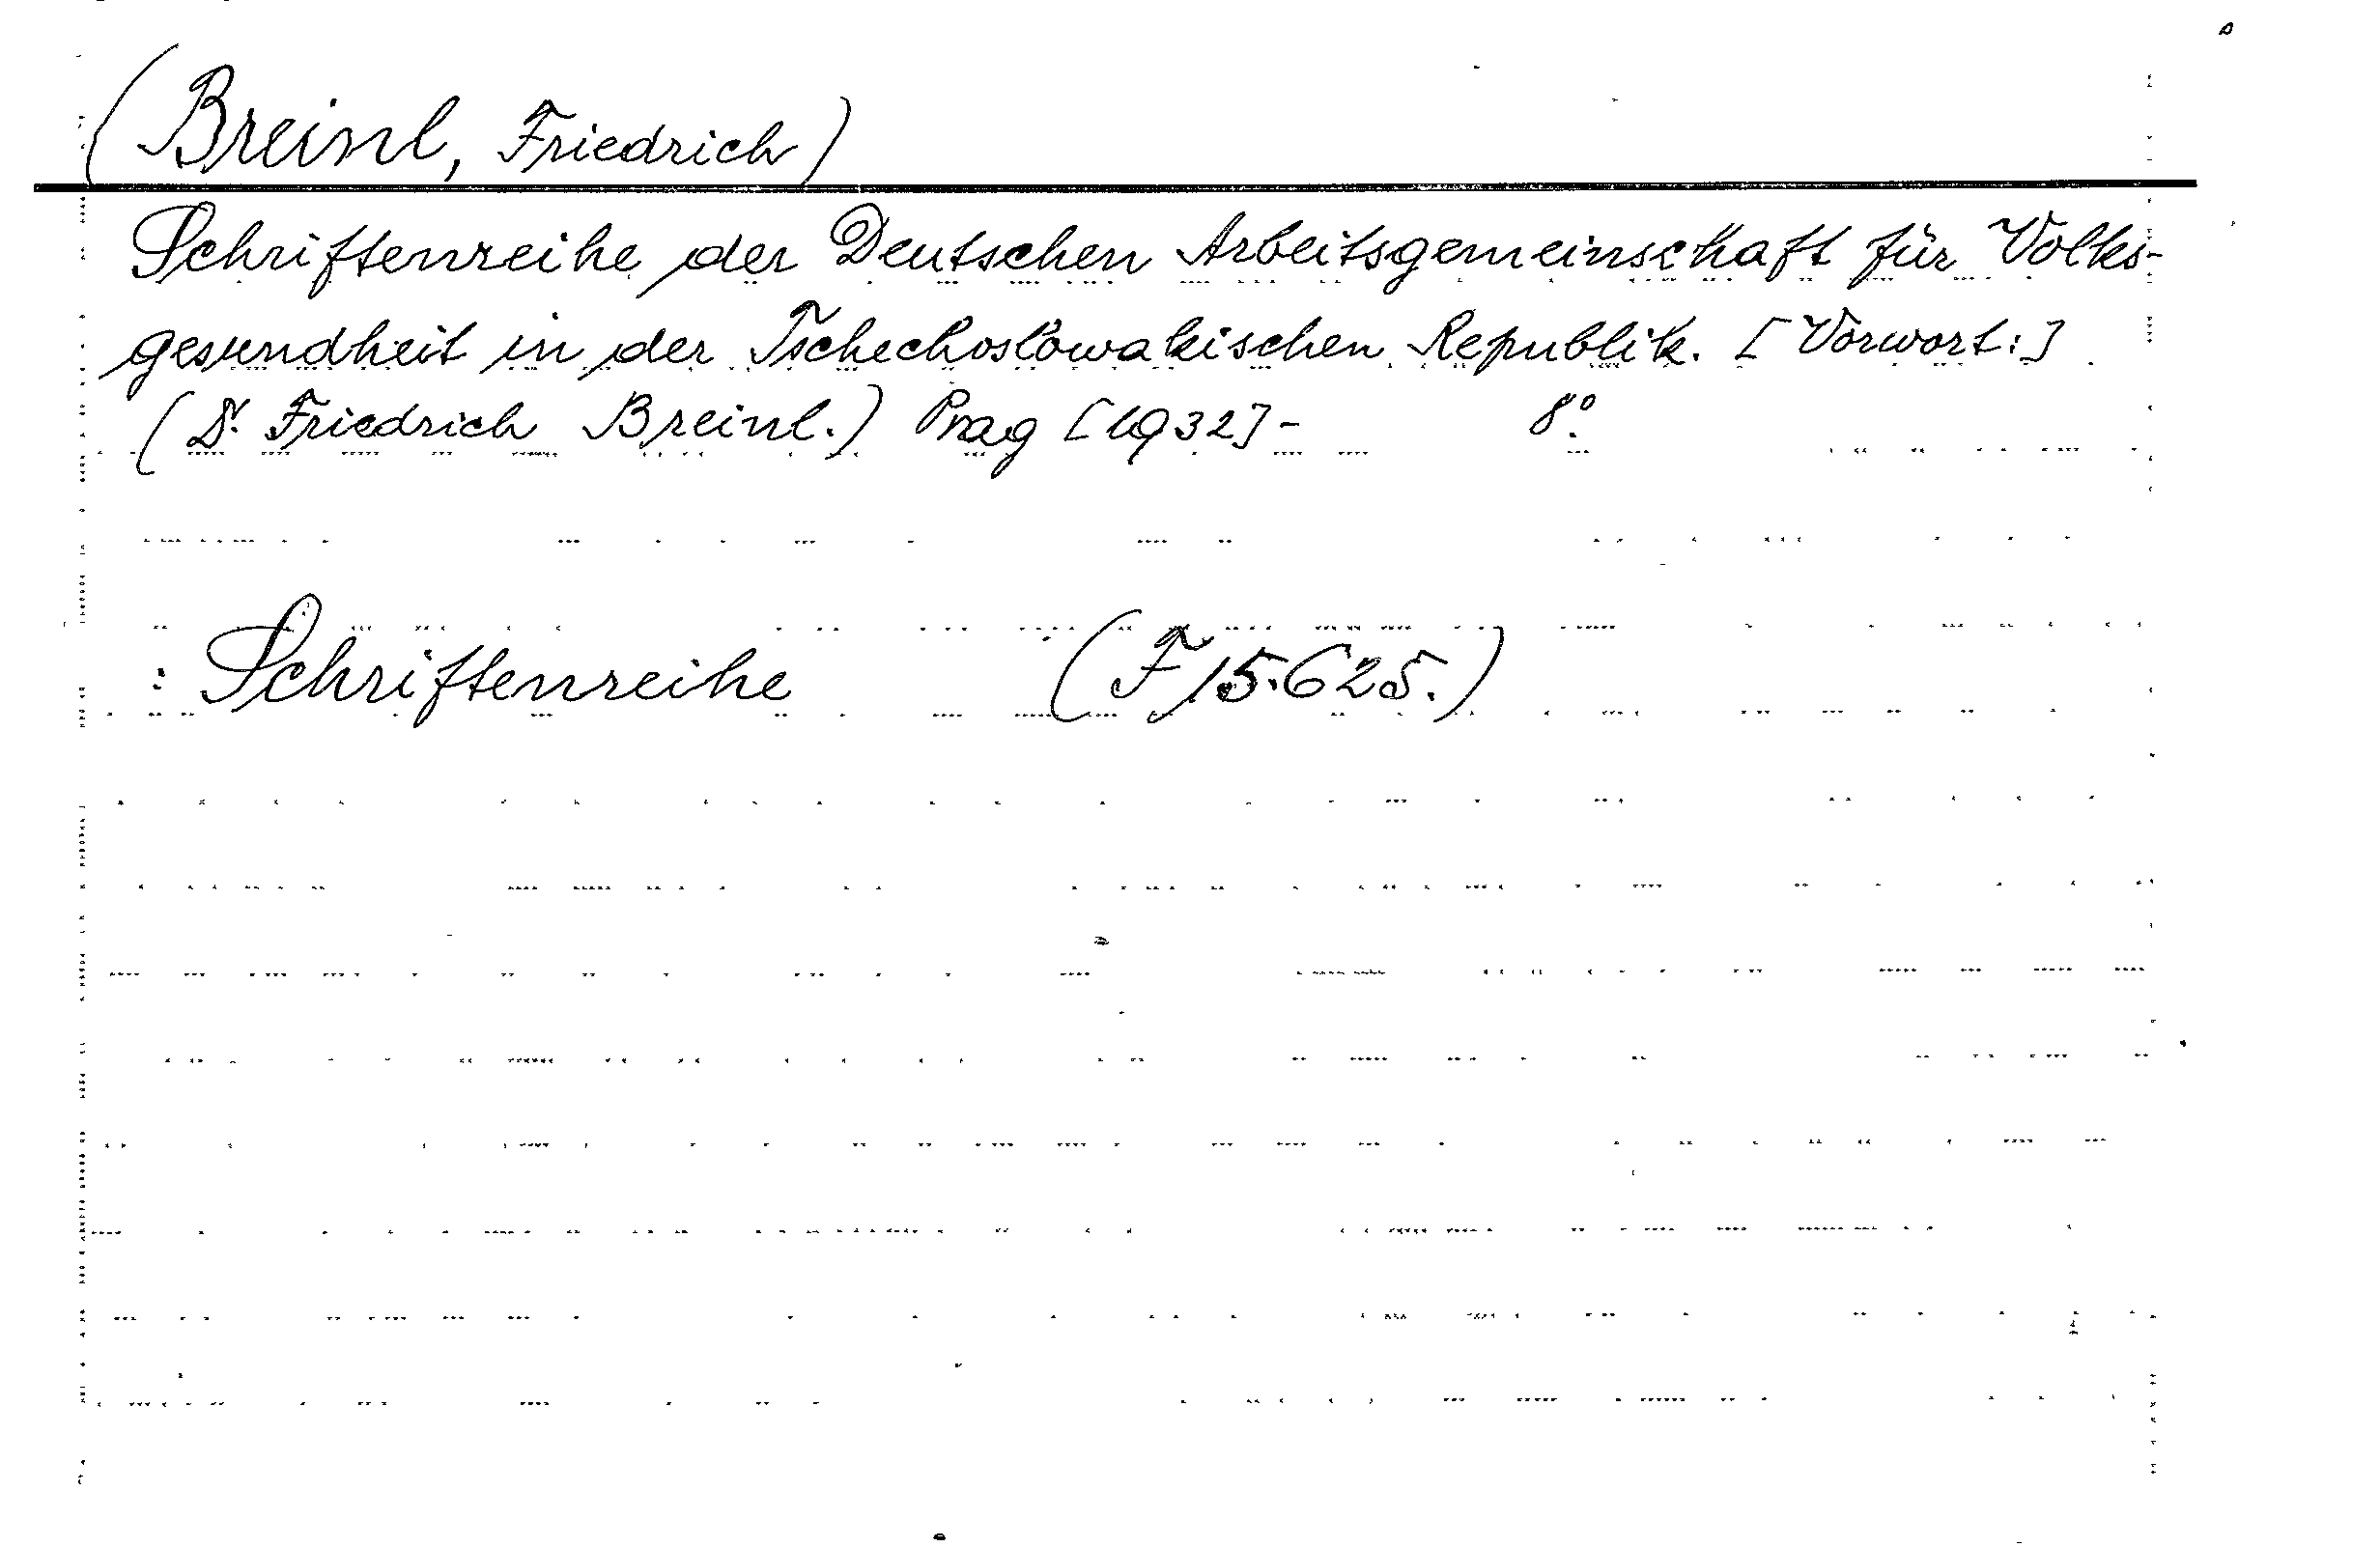 (Breinl, Friedrich)
Schriftenreihe der Deutschen Arbeitsgemeinschaft für Volks-
gesundheit in der Tschechoslowakischen Republik. [Vorwort:]
(Dr. Friedrich Breinl.) Prag [1932]- 8°.
: Schriftenreihe (F 15.625.)